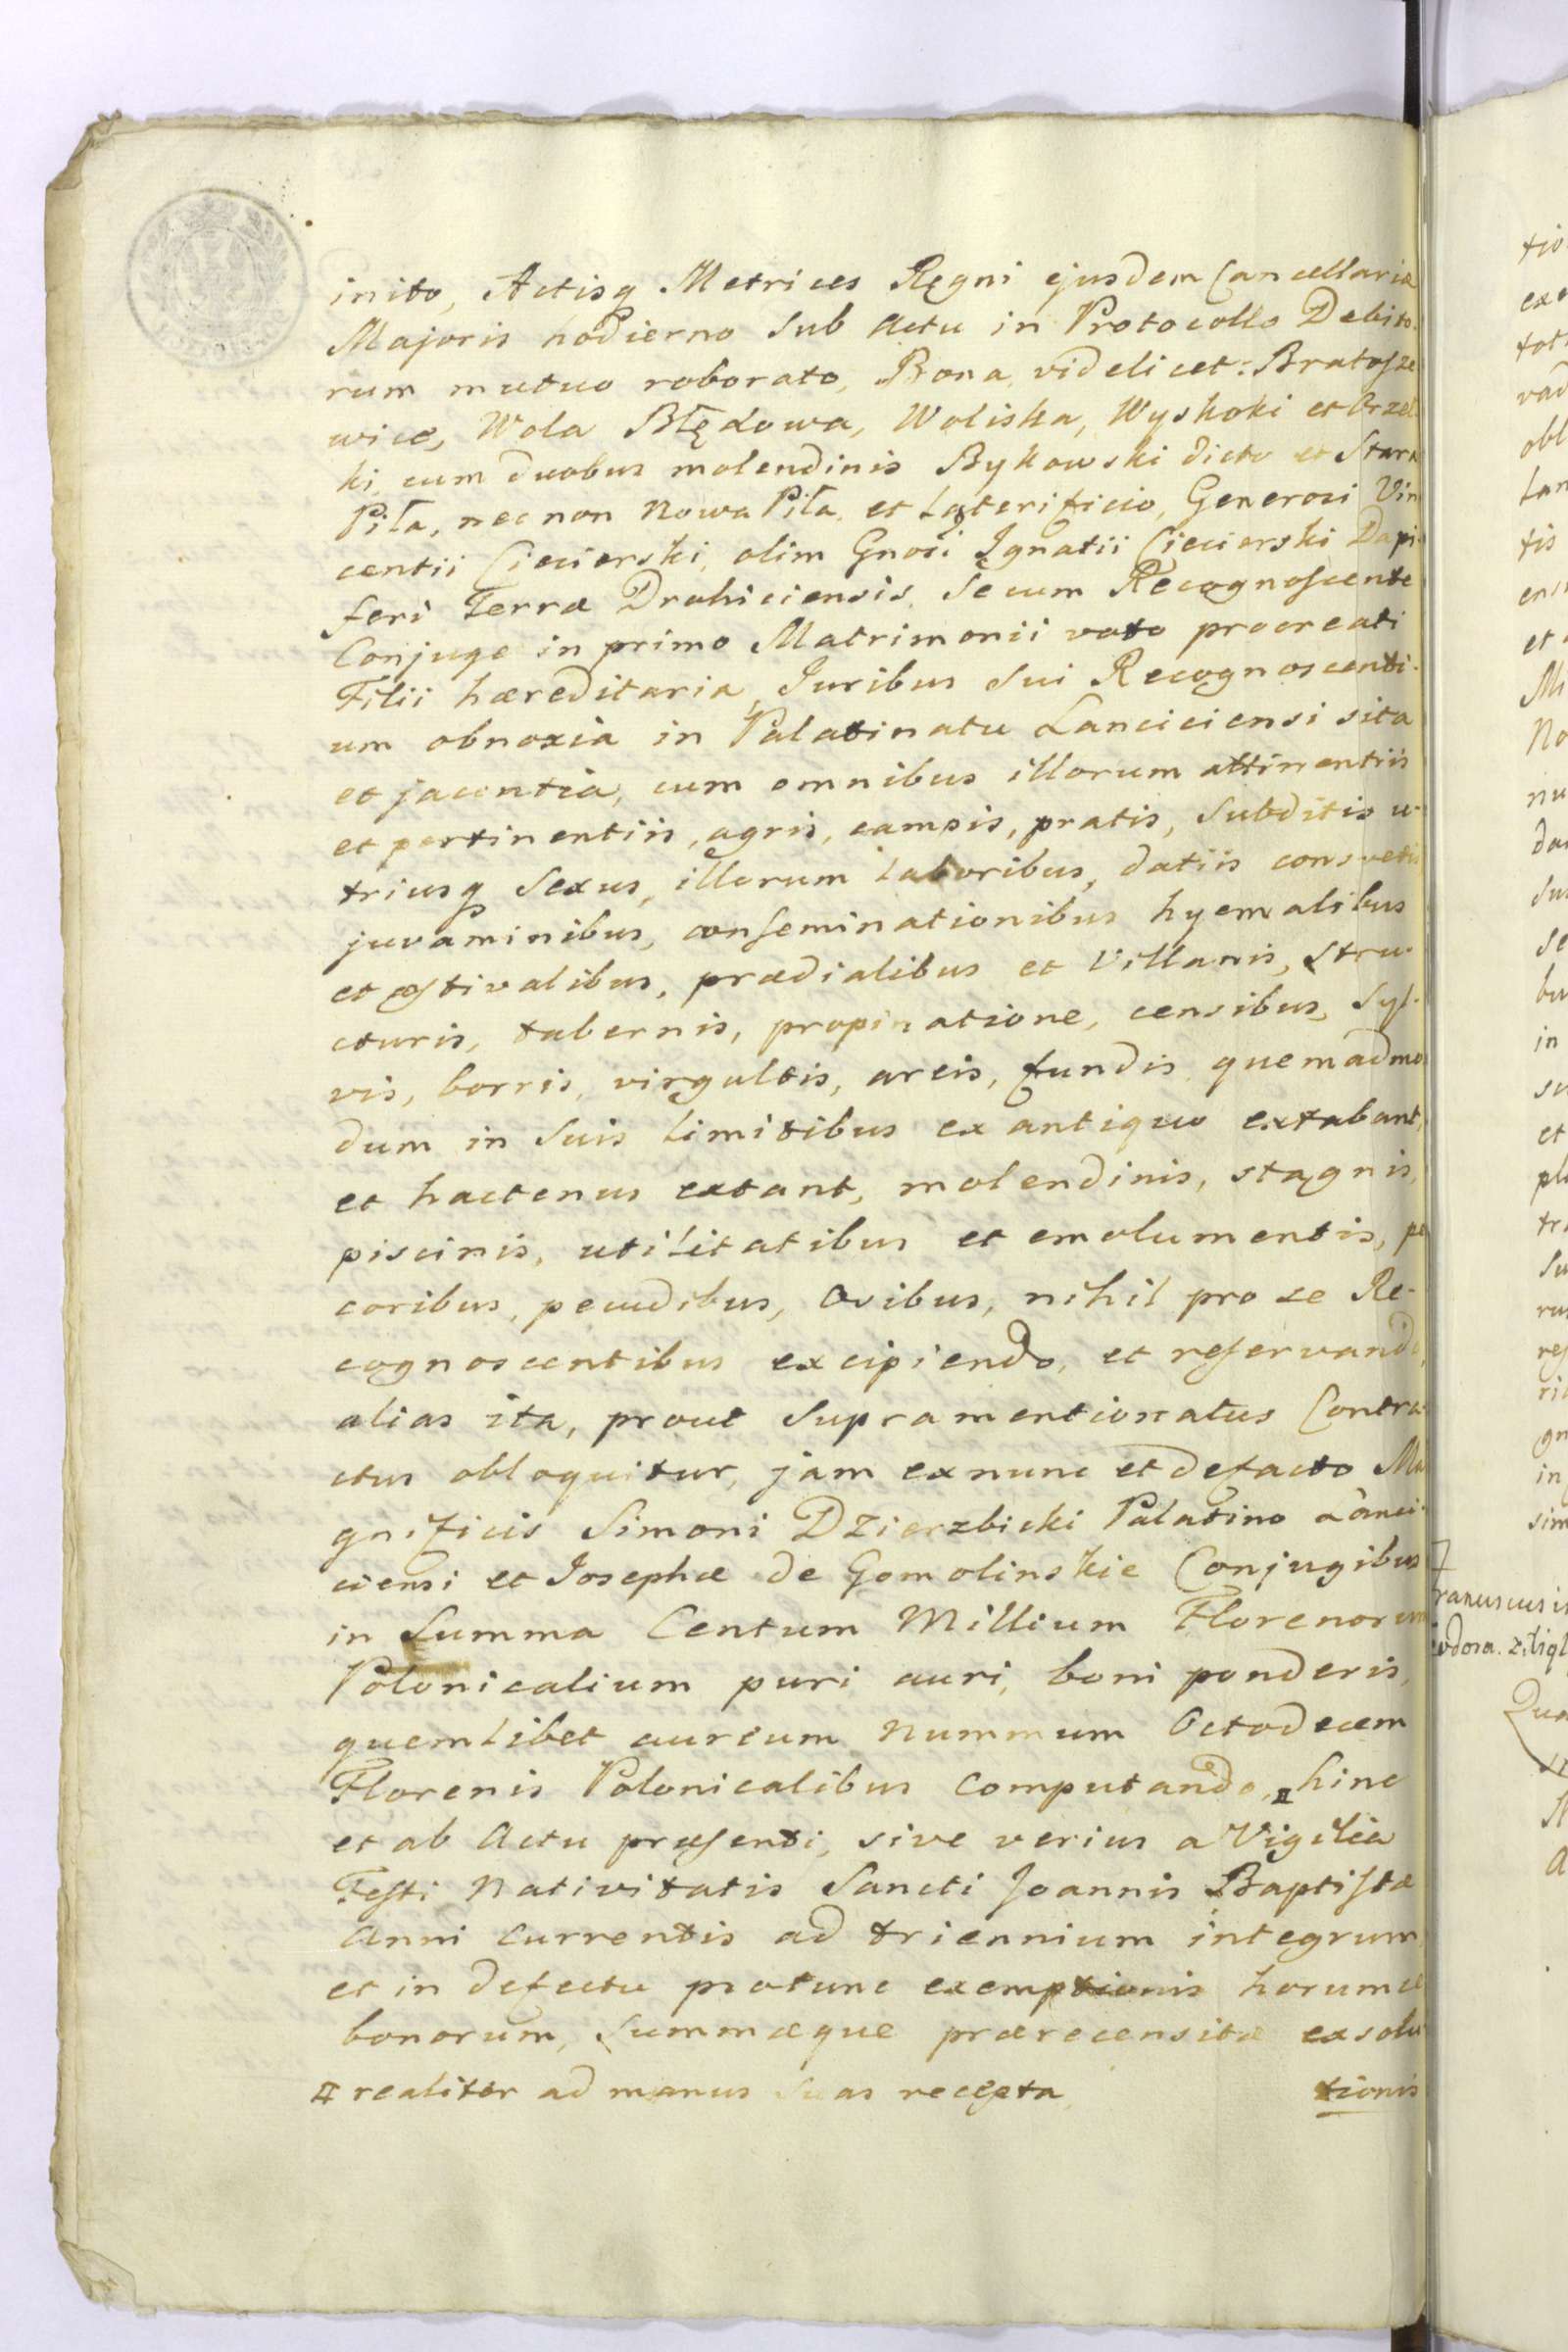 inito, Actisq Metrices Regni ejusdem Cancellariæ
Majoris hodierno Sub Actu in Protocollo Debito-
rum mutuo roborato, Bona videlicet: Bratosze
wice, Wola Błędowa, Woliska, Wyskoki et Orzeł
ki cum duobus molendinis Bykowski dicto et Stara
Piła, necnon Nowa Piła, et Laterificio, Generosi Vin
centii Ciecierski, olim Gnosi Ignatii Ciecierski Dapi-
feri Terræ Drohiciensis, Secum Recognoscente
Conjuge in primo Matrimonii voto procreati
Filii hæreditaria, Juribus Sui Recognoscenti-
um obnoxia in Palatinatu Lanciciensi sita
et jacentia, cum omnibus illorum attinentiis
et pertinentiis, agris, campis, pratis, Subditis u-
triusq Sexus, illorum Laboribus, datiis consvetis
juvaminibus, conseminationibus hyemalibus
et æstivalibus, prædialibus et Villanis, Stru-
cturis, tabernis, propinatione, censibus, Syl-
vis, borris, virgultis, areis, fundis quemadmo
dum in Suis Limitibus ex antiquo extabant,
et hactenus extant, molendinis, stagnis,
piscinis, utilitatibus et emolumentis, pe
coribus, pecudibus, Ovibus, nihil pro se Re-
cognoscentibus excipiendo, et reservando,
alias ita, prout Supramentionatus Contra-
ctus obloquitur, jam exnunc et defacto Ma
gnificis Simoni Dzierzbicki Palatino Lanci-
ciensi et Josephæ de Gomolinskie Conjugibus
in Summa Centum Millium Florenorum
Polonicalium puri auri, boni ponderis,
quemlibet aureum Nummum Octodecem
Florenis Polonicalibus Computando, # hinc
et ab Actu præsenti, sive verius a Vigilia
Festi Nativitatis Sancti Joannis Baptistæ
Anni Currentis ad triennium integrum
et in defectu protunc exemptionis horumce
bonorum, Summæque prærecensitæ exsolu
# realiter ad manus Suas recepta tionis